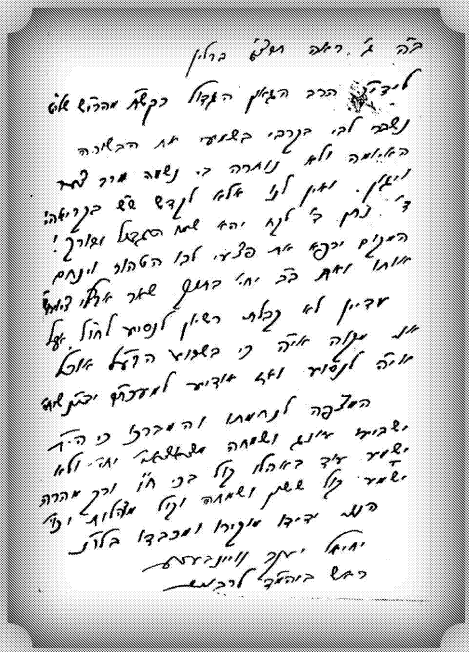 ב"ה ג' ראה תרצ"ט ברלין
לידי"נ הרב הגאון הגדול כקש"ת מהר"ש שליט"א
נשבר לבי בקרבי בשמעי את הבשורה
האיומה ולא נותרה בי נשמה מרב צער
ויגון. ואין לנו אלא לקדש ש"ש בקריאה:
ד' נתן ד' לקח יהא שמו הגדול מבורך!
המקום ירפא את פצעי לבו הטהור וינחם
אותו ואת ב"ב יחי' בתוך שאר אבלי ציון
עדיין לא קבלתי רשיון לנסוע לחו"ל אבל
אני מקוה אי"ה כי בשבוע הבע"ל אוכל
אי"ה לנסוע ואז אודיע למעכ"ת
המצפה לנחמתו והמברכו כי ה'
ישביעו עונג ושמחה יחי' ולא
ישמע עוד באהלו קול בכי ח"ו ורק מהרה
ישמע קול ששון ושמחה וקול מצהלות וכו'
הנני ידידו מוקירו ומכבדו בלו"נ
יחיאל יעקב וויינבערג
ראש ביהמ"ד לרבנים